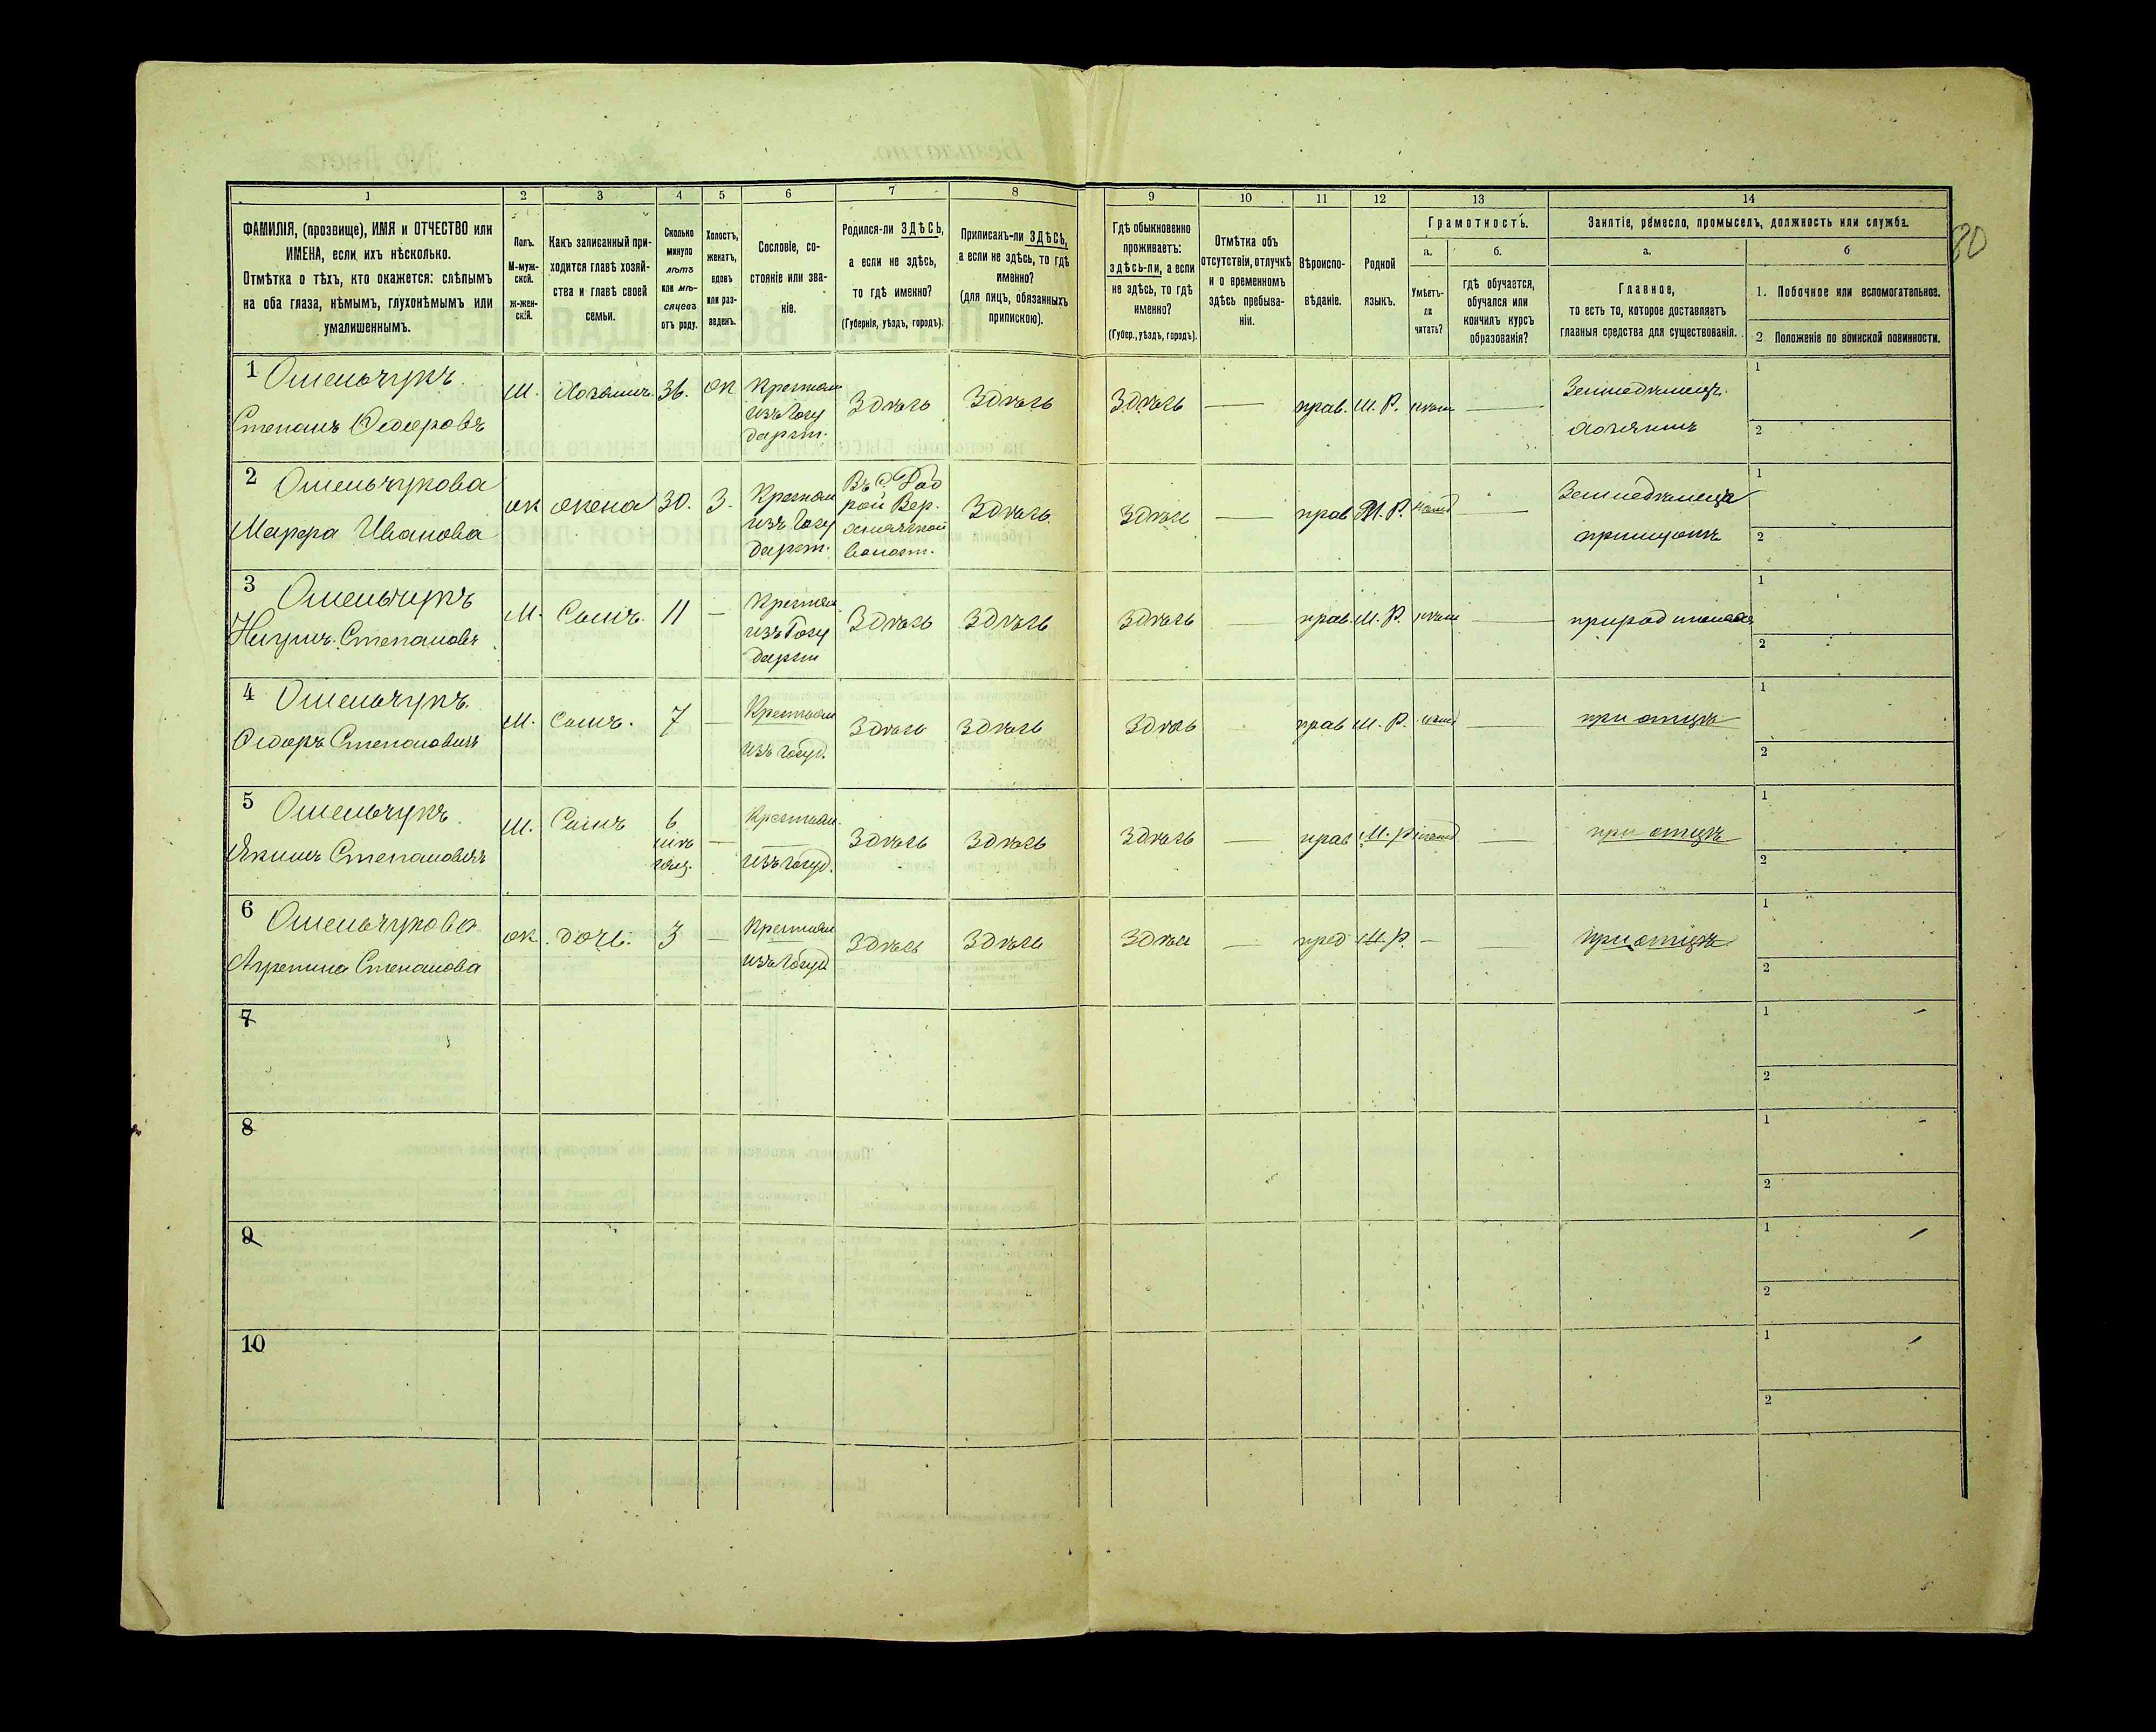 1 2 3 4 5 6 7 8 9 10 11 12 13 14
ФАМИЛІЯ, (прозвище), ИМЯ и ОТЧЕСТВО или
ИМЕНА, если ихъ нѣсколько.
Отмѣтка о тѣхъ, кто окажется: слѣпымъ
на оба глаза, нѣмымъ, глухонѣмымъ или
умалишеннымъ.
Полъ.
М-муж-
ской.
ж-жен-
скій.
Какъ записанный при-
ходится главѣ хозяй-
ства и главѣ своей
семьи.
Сколько
минуло
лѣтъ
или мѣ-
сяцевъ
отъ роду.
Холостъ,
женатъ,
вдовъ
или раз-
веденъ.
Сословіе, со-
стояніе или зва-
ніе.
Родился-ли ЗДѢСЬ,
а если не здѣсь,
то гдѣ именно?
(Губернія, уѣздъ, городъ).
Приписанъ-ли ЗДѢСЬ,
а если не здѣсь, то гдѣ
именно?
(для лицъ, обязанныхъ
припискою).
Гдѣ обыкновенно
проживаетъ:
здѣсь-ли, а если
не здѣсь, то гдѣ
именно?
(Губер., уѣздъ, городъ).
Отмѣтка объ
отсутствіи, отлучкѣ
и о временномъ
здѣсь пребыва-
ніи.
Вѣроиспо-
вѣданіе.
Родной
языкъ.
Грамотность.
а.
Умѣетъ-
ли
читать?
б.
гдѣ обучается,
обучался или
кончилъ курсъ
образованія?
Занятіе, ремесло, промыселъ, должность или служба.
а.
Главное,
то есть то, которое доставляетъ
главныя средства для существованія.
б
1. Побочное или вспомогательное.
2 Положеніе по воинской повинности.
80
1 Омельчукъ
Степанъ Ѳедоровъ
М. Хозяинъ. 36. ж
Крестьян
изъ Госу
дарст.
Здѣсь Здѣсь Здѣсь — прав. М. Р. —
Земледѣлецъ
хозяинъ
1
2
2 Омельчукова
Марфа Иванова
ж жена 30. З.
Крестьян
изъ Госу
дарст.
Здѣсь Здѣсь — прав М. Р. —
Земледѣлеца
1
2
3 Омельчукъ
Степановъ
М. Сынъ. 11 —
Крестьян
изъ Госу
дарст
Здѣсь Здѣсь Здѣсь — прав. М. Р. —
1
2
4 Омельчукъ.
Ѳедоръ Степановичъ
М. Сынъ. 7 —
Крестьян
изъ Госуд.
Здѣсь Здѣсь Здѣсь прав М. Р. —
при отцѣ
1
2
5 Омельчукъ
Якимъ Степановичъ
М. Сынъ 6 —
Крестьян.
изъ Госуд.
Здѣсь Здѣсь Здѣсь — прав М. Р. —
при отцѣ
1
2
6 Омельчукова
Агрепина Степанова
ж. дочь. 3 —
Крестьян
изъ Госуд
Здѣсь Здѣсь Здѣсь — М. Р. — —
при отцѣ
1
2
7
1
2
8
1
2
9
1
2
10
1
2